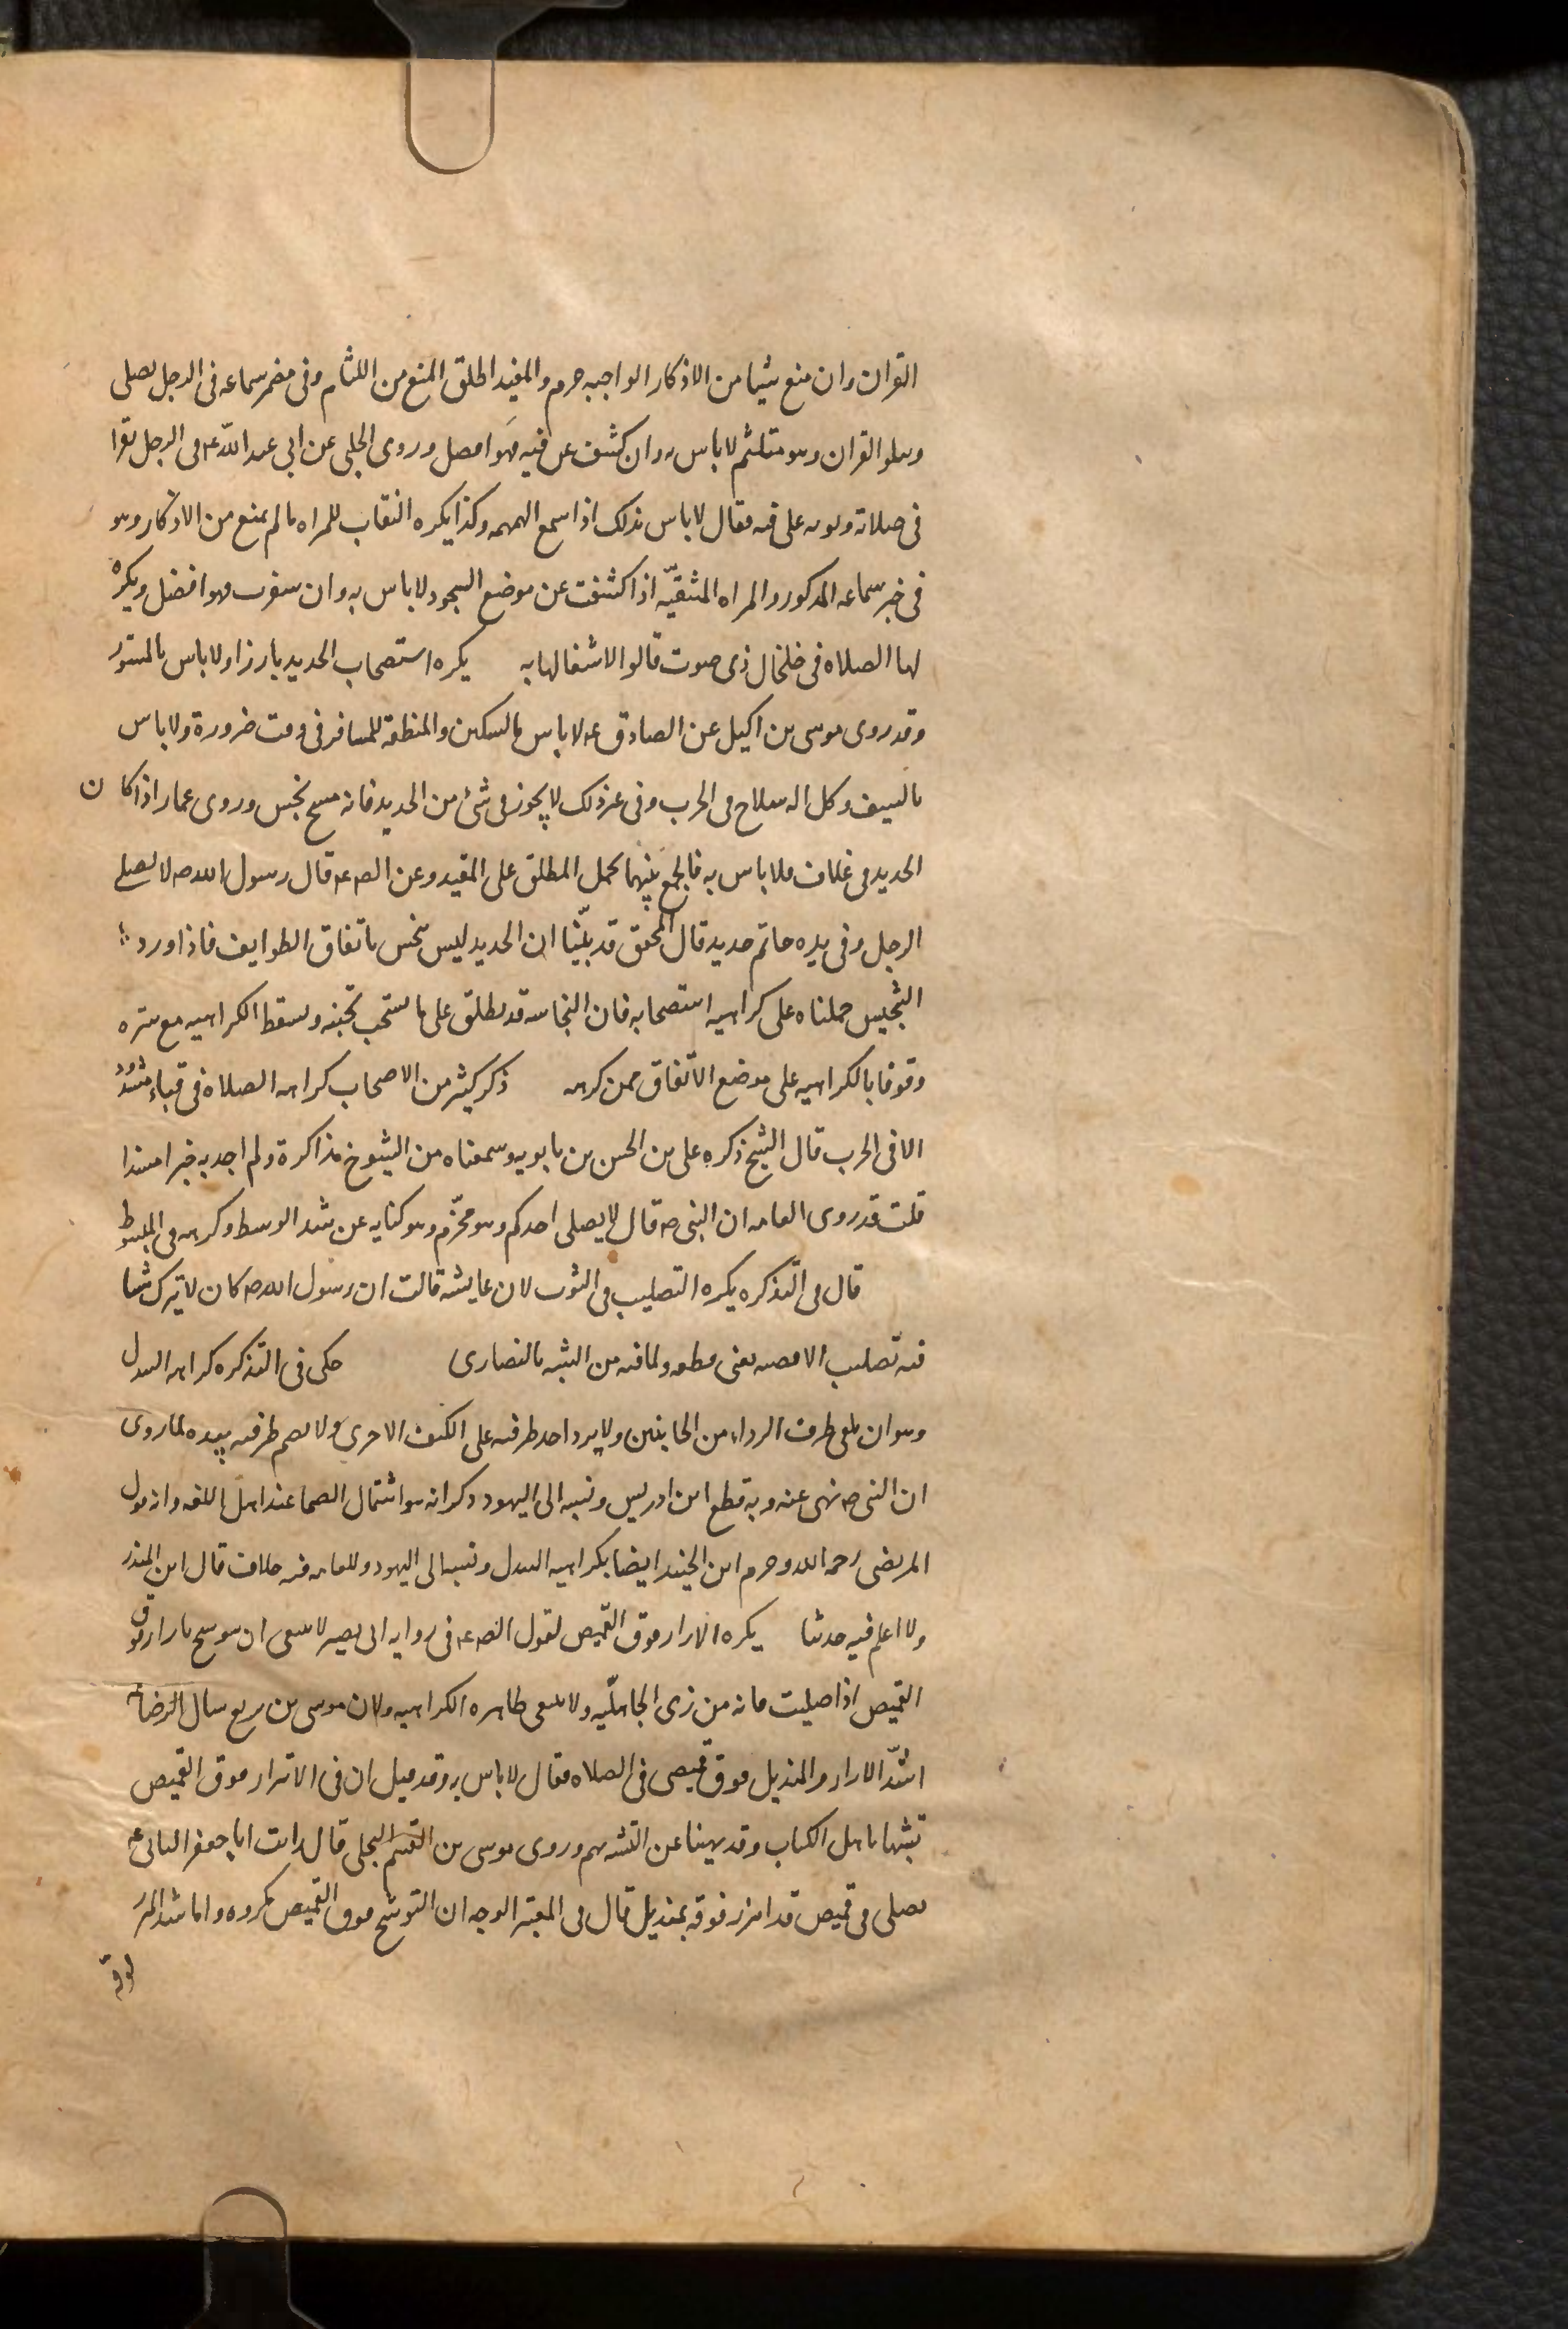 القران وان منع شيا من الاذكار الواجبه حرم والمفيد اطلق المنع من اللثام وفى مضمر سماعه فى الرجل يصلى
ويتلو القران وهو متلثم لا باس به وان كشف عن فيه فهو افضل وروى الحلبى عن ابى عبد الله ع فى الرجل يقرا
فى صلاته وثوبه على فيه فقال لا باس بذلك اذا سمع الهمهمه وكذا يكره النقاب للمراه ما لم يمنع من الاذكار وهو
فى خبر سماعه المذكور والمراه المتنقبه اذا كشفت عن موضع السجود لا باس به وان سفرت فهو افضل ويكره
لها الصلاه فى خلخال ذى صوت قالوا لاشتغالها به يكره استصحاب الحديد بارزا ولا باس بالمستور
وقد روى موسى بن اكيل عن الصادق ع لا باس بالسكين والمنطقه للمسافر فى وقت ضرورة ولا باس
بالسيف وكل اله سلاح فى الحرب وفى غير ذلك لا يجوز فى شئ من الحديد فانه مسخ نجس وروى عمار اذا كان
الحديد فى غلاف فلا باس به فالجمع بينهما بحمل المطلق على المقيد وعن الصه ع قال رسول الله ص لا يصلى
الرجل وفى يده خاتم حديد قال المحقق قد بيّنا ان الحديد ليس بنجس باتفاق الطوايف فاذا ورد
التنجيس حملناه على كراهيه استصحابه فان النجاسه قد يطلق على ما يستحب تجنبه ويسقط الكراهيه مع ستره
وقوفا بالكراهيه على موضع الاتفاق ممن كرهه ذكر كثير من الاصحاب كراهه الصلاة فى قباء مشدود
الا فى الحرب قال الشيخ ذكره على بن الحسن بن بابويه وسمعناه من الشيوخ مذاكرة ولم اجد به خبرا مسندا
قلت قد روى العامه ان النبى ص قال لا يصلى احدكم وهو محزّم وهو كنايه عن شد الوسط وكرهه فى المبسوط
قال فى التذكره يكره التصليب فى الثوب لان عايشه قالت ان رسول الله ص كان لا يترك شيا
فيه تصليب الا قضبه يعنى قطعه ولما فيه من التشبه بالنصارى حكى فى التذكره كراهه السدل
وهو ان يلقى طرف الرداء من الجانبين ولا يرد احد طرفيه على الكتف الاخرى ولا يضم طرفيه بيده لما روى
ان النبى ص نهى عنه وبه قطع ابن ادريس ونسبه الى اليهود وذكر انه هو اشتمال الصما عند اهل اللغه وانه قول
المرتضى رحمه الله وحرم ابن الجنيد ايضا بكراهيه السدل ونسبه الى اليهود وللعامه فيه خلاف قال ابن المنذر
ولا اعلم فيه حديثا يكره الازار فوق القميص لقول الصه ع فى روايه ابى بصير لا ينبغى ان تتوشح بازار فوق
القميص اذا صليت فانه من زى الجاهليّه ولا ينبغى ظاهره الكراهيه ولان موسى بن بزيع سال الرضا ع
اشدّ الازار والمنديل فوق قميصى فى الصلاه فقال لا باس به وقد قيل ان فى الاتزار فوق القميص
تشبها باهل الكتاب وقد نهينا عن التشبه بهم وروى موسى بن القسم البجلى قال رايت ابا جعفر الثانى ع
يصلى فى قميص قد اتزر فوقه بمنديل قال فى المعتبر الوجه ان التوشح فوق القميص مكروه واما شد المئزر
فوقه